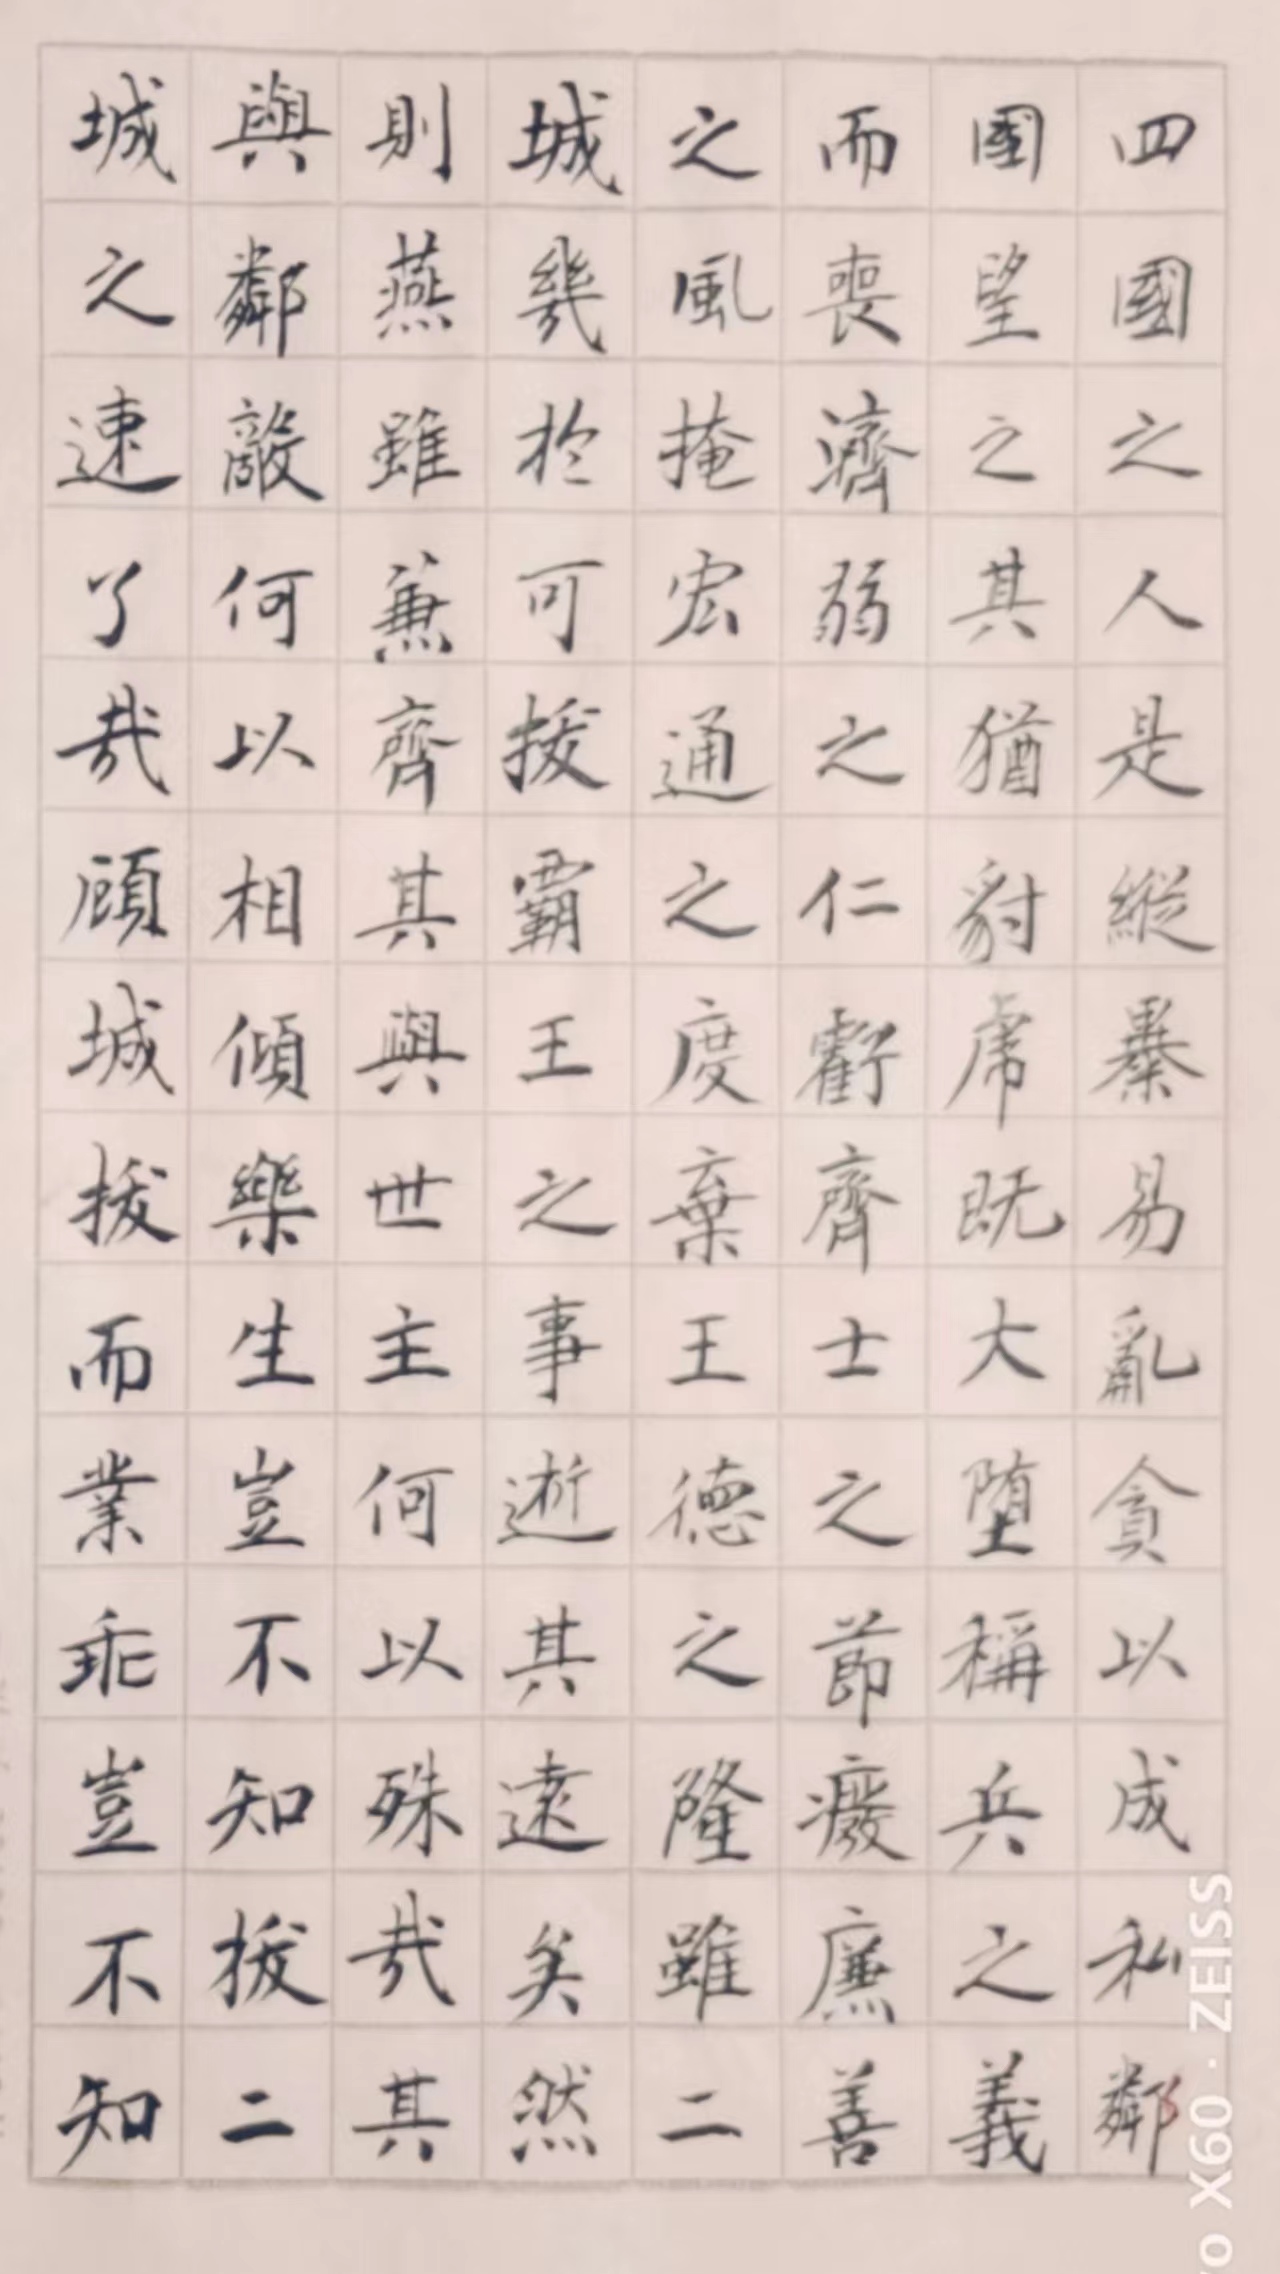 四國之人是縱暴易亂貪以成私鄰
國望之其猶豺虎既大墮稱兵之義
而喪濟弱之仁虧齊士之節癈廉善
之風掩宏通之度棄王德之隆雖二
城幾於可拔霸王之事逝其遠矣然
則燕雖兼齊其與世主何以殊哉其
與鄰敵何以相傾樂生豈不知拔二
城之速了哉顧城拔而業乖豈不知
vo X60 · ZEISS